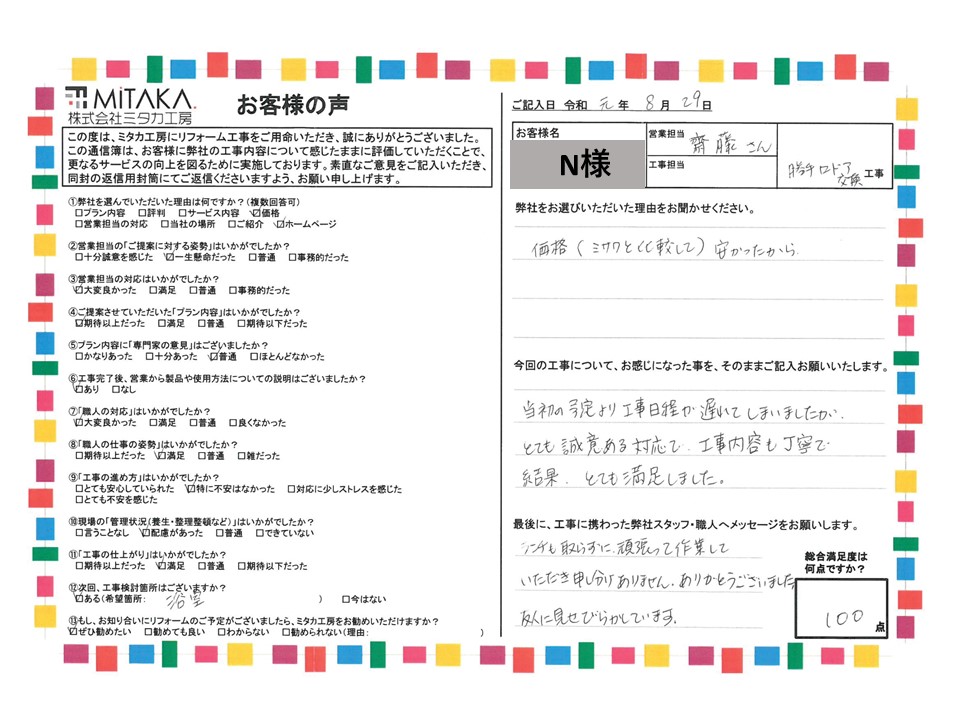 MiTAKA.
株式会社ミタカ工房
お客様の声
この度は、ミタカ工房にリフォーム工事をご用命いただき、誠にありがとうございました。
この通信簿は、お客様に弊社の工事内容について感じたままに評価していただくことで、
更なるサービスの向上を図るために実施しております。素直なご意見をご記入いただき、
同封の返信用封筒にてご返信くださいますよう、お願い申し上げます。
①弊社を選んでいただいた理由は何ですか?(複数回答可)
□プラン内容 □評判 □サービス内容 ☑価格
□営業担当の対応 □当社の場所 □ご紹介 ☑ホームページ
②営業担当の「ご提案に対する姿勢」はいかがでしたか?
□十分誠意を感じた ☑一生懸命だった □普通 □事務的だった
③営業担当の対応はいかがでしたか?
☑大変良かった □満足 □普通 □事務的だった
④ご提案させていただいた「プラン内容」はいかがでしたか?
☑期待以上だった □満足 □普通 □期待以下だった
⑤プラン内容に「専門家の意見」はございましたか?
□かなりあった □十分あった ☑普通 □ほとんどなかった
⑥工事完了後、営業から製品や使用方法についての説明はございましたか?
☑あり □なし
⑦「職人の対応」はいかがでしたか?
☑大変良かった □満足 □普通 □良くなかった
⑧「職人の仕事の姿勢」はいかがでしたか?
□期待以上だった ☑満足 □普通 □雑だった
⑨「工事の進め方」はいかがでしたか?
□とても安心していられた ☑特に不安はなかった □対応に少しストレスを感じた
□とても不安を感じた
⑩現場の「管理状況(養生・整理整頓など)」はいかがでしたか?
□言うことなし ☑配慮があった □普通 □できていない
⑪「工事の仕上がり」はいかがでしたか?
□期待以上だった ☑満足 □普通 □期待以下だった
⑫次回、工事検討箇所はございますか?
☑ある(希望箇所: 浴室 ) □今はない
⑬もし、お知り合いにリフォームのご予定がございましたら、ミタカ工房をお勧めいただけますか?
☑ぜひ勧めたい □勧めても良い □わからない □勧められない(理由: )
ご記入日 令和 元年 8月 29日
お客様名
N様
営業担当 齋藤さん
工事担当
勝手口ドア交換 工事
弊社をお選びいただいた理由をお聞かせください。
価格(ミサワと比較して)安かったから
今回の工事について、お感じになった事を、そのままご記入お願いいたします。
当初の予定より工事日程が遅れてしまいましたが、
とても誠意ある対応で、工事内容も丁寧で
結果、とても満足しました。
最後に、工事に携わった弊社スタッフ・職人へメッセージをお願いします。
取らずに、頑張って作業して
いただき申し分ありません。ありがとうございました
友人に見せびらかしています。
総合満足度は
何点ですか?
100 点